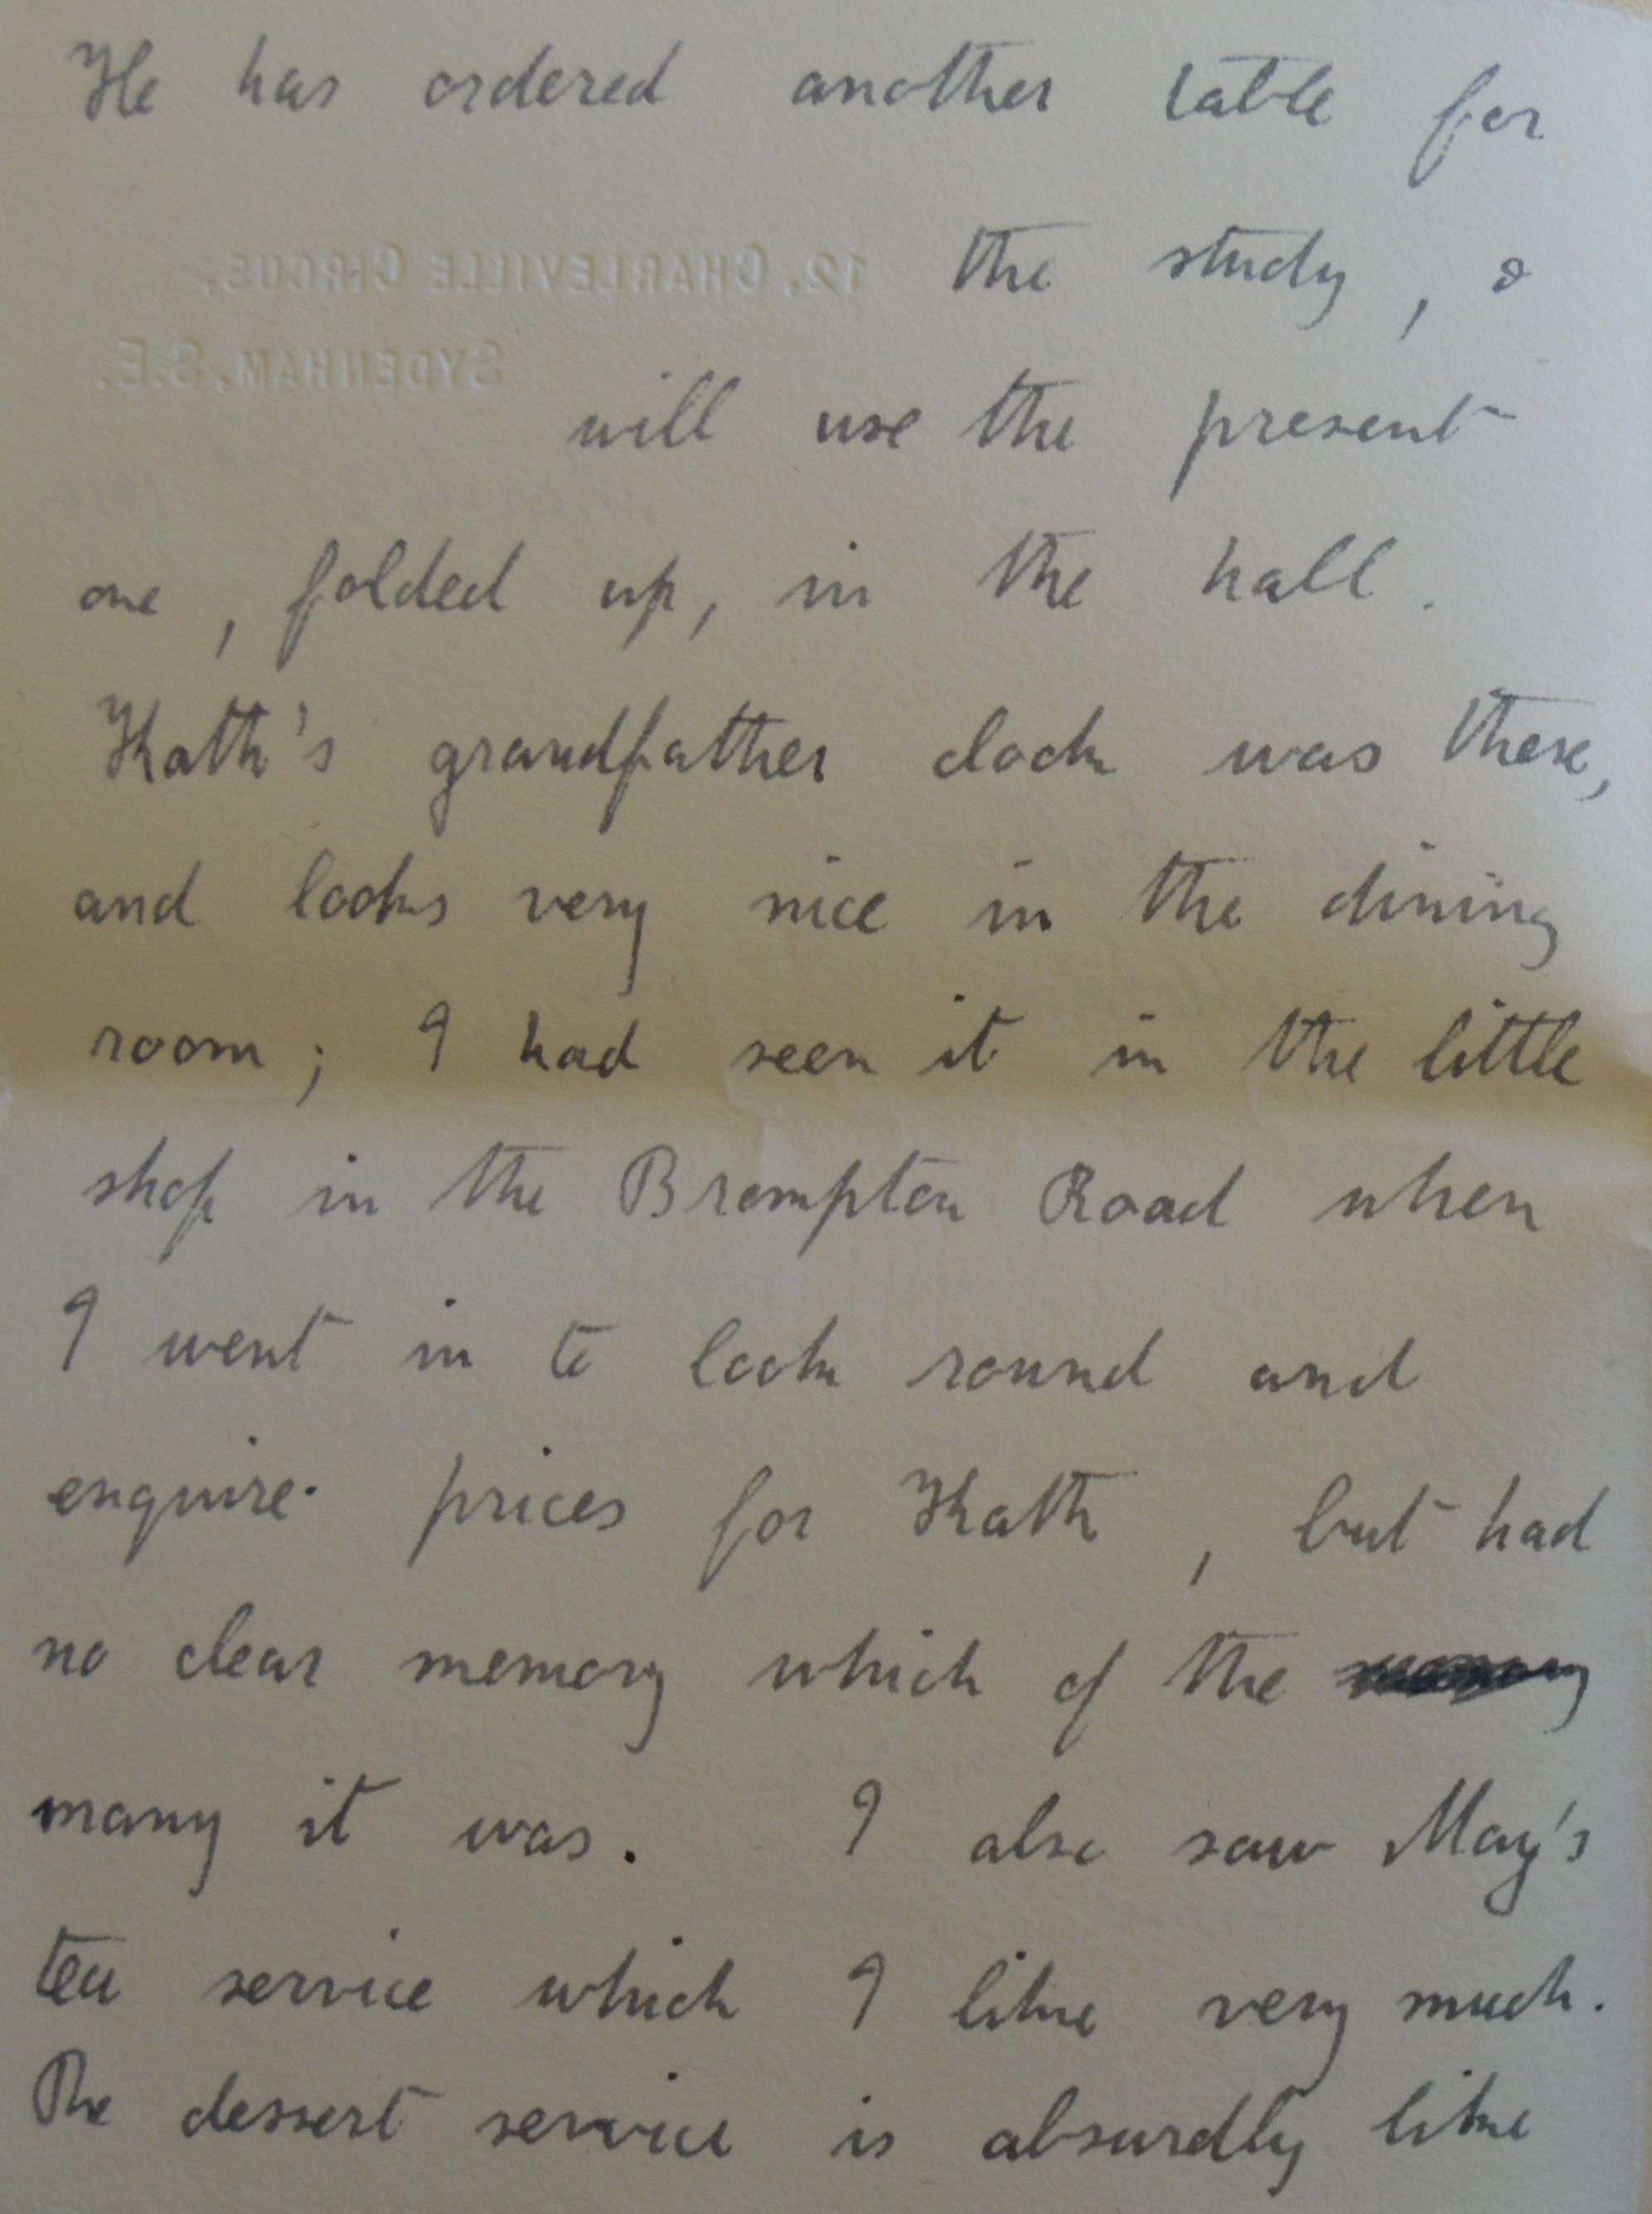 He has ordered another table for
12, CHARLEVILLE CIRCUS,
the study, &
SYDENHAM, S.E.
will use the present
one, folded up, in the hall.
Kath's grandfather clock was there,
and looks very nice in the dining
room; I had seen it in the little
shop in the Brompton Road when
I went in to look round and
enquire prices for Kath, but had
no clear memory which of the
many it was. I also saw May's
tea service which I like very much.
The dessert service is absurdly like